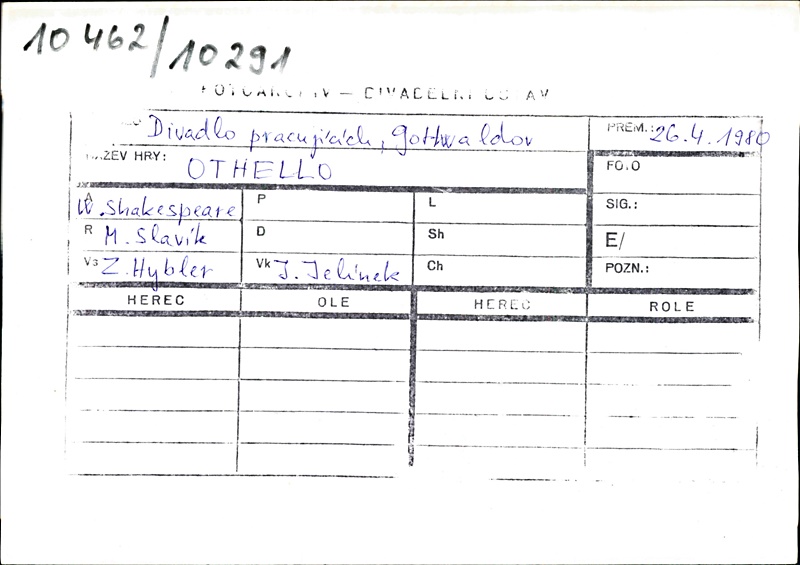 10 462/10 291
FOTOARCHIV – DIVADELNÍ ÚSTAV
Divadlo pracujících, Gottwaldov
PREM.: 26.4.1980
NÁZEV HRY: OTHELLO
FOTO
A W. Shakespeare
P
L
SIG.:
R M. Slavík
D
Sh
E/
Vs Z. Hybler
Vk J. Jelínek
Ch
POZN.:
HEREC
OLE
HEREC
ROLE